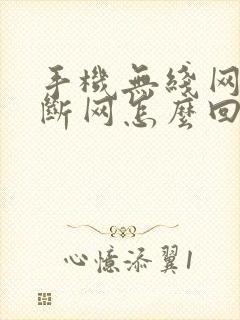 手機無綫网
斷网怎麽回
心憶添翼1